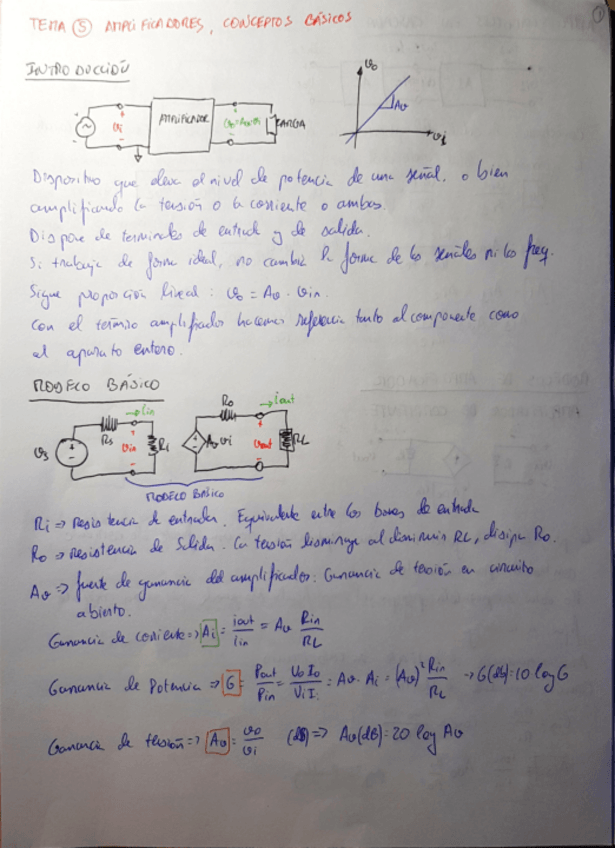 1
TEMA 5 AMPLIFICADORES, CONCEPTOS BÁSICOS
INTRODUCCIÓN
AMPLIFICADOR
vi
CARGA
vo
Av
vi
Dispositivo que eleva el nivel de potencia de una señal, o bien
amplificando la tensión o la corriente o ambas.
Dispone de terminales de entrada y de salida.
Si trabaja de forma ideal, no cambia la forma de las señales ni las freq.
Sigue proporción lineal: vo = Av · vin.
Con el término amplificador hacemos referencia tanto al componente como
al aparato entero.
MODELO BÁSICO
→ iin
Ro
→ iout
vs
Rs
vin
Ri
Av vi
vout
RL
MODELO BÁSICO
Ri => Resistencia de entrada. Equivalente entre los bornes de entrada
Ro => Resistencia de salida. La tensión disminuye al disminuir RL, disipa Ro.
Av => fuente de ganancia del amplificador. Ganancia de tensión en circuito
abierto.
Ganancia de corriente => Ai = iout/iin = Av Rin/RL
Ganancia de Potencia => G = Pout/Pin = Vo Io/Vi Ii = Av · Ai = (Av)² Rin/RL → G(dB)=10 log G
Ganancia de tensión => Av = vo/vi (dB) => Av(dB)=20 log Av